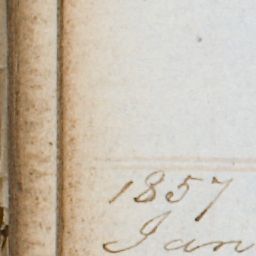 1857
Jan